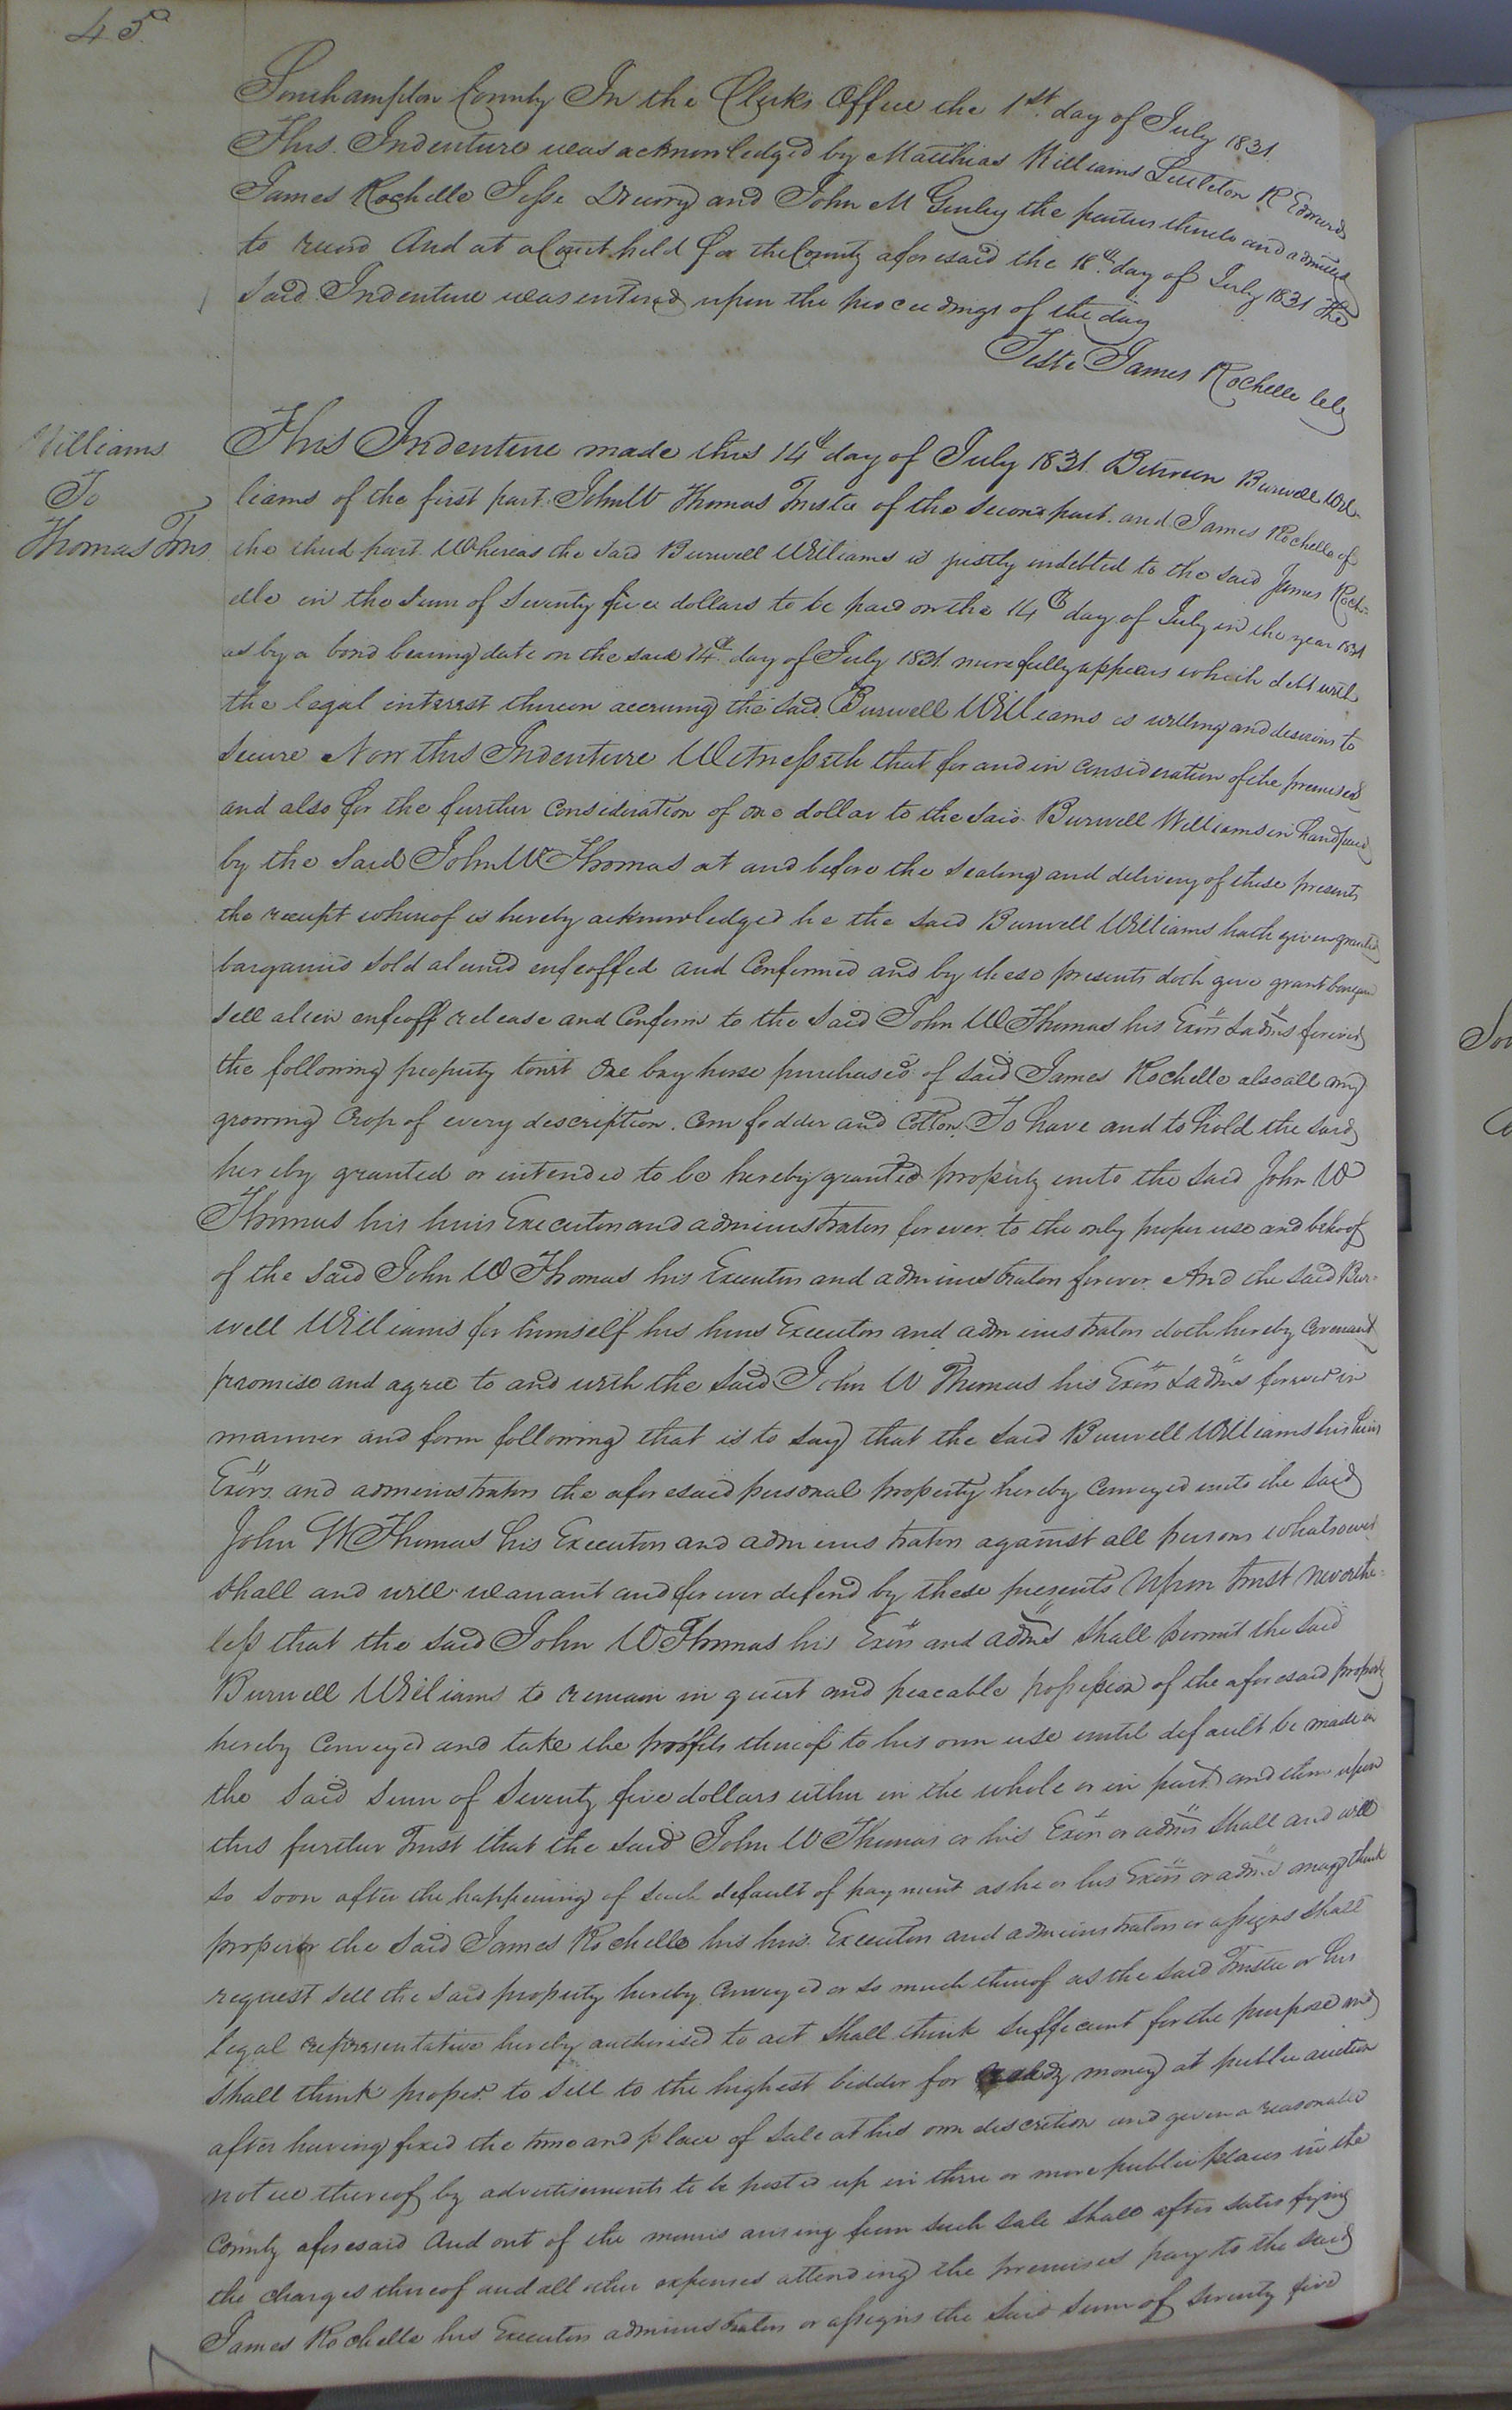 45
Southampton County In the Clerks Office the 1st day of July 1831.
This Indenture was acknowledged by Matthias Williams Littleton R Edwards
James Rochelle Jesse Drewry and John M Gurley the parties thereto and admitted
to record And at a Court held for the County aforesaid the 18th day of July 1831 The
said Indenture was entered upon the proceedings of the day
Teste James Rochelle
Williams
To
Thomas Trus
This Indenture made this 14th day of July 1831 Between Burwell Wil-
liams of the first part John W Thomas Trustee of the second part and James Rochelle of
the third part Whereas the said Burwell Williams is justly indebted to the said James Roch-
elle in the sum of Seventy five dollars to be paid on the 14th day of July in the year 1831
as by a bond bearing date on the said 14th day of July 1831 more fully appears which debt with
the legal interest thereon accruing the said Burwell Williams is willing and desirous to
secure Now this Indenture Witnesseth that for and in consideration of the premises
and also for the further consideration of one dollar to the said Burwell Williams in hand paid
by the said John W Thomas at and before the sealing and delivery of these presents
the receipt whereof is hereby acknowledged he the said Burwell Williams hath given granted
bargained sold aliened enfeoffed and Confirmed and by these presents doth give grant bargain
sell alien enfeoff release and Confirm to the said John W Thomas his Exōrs & admrs forever
the following property towit One bay horse purchased of said James Rochelle also all my
growing Crop of every description. Corn fodder and Cotton. To have and to hold the said
hereby granted or intended to be hereby granted property unto the said John W
Thomas his heirs Executors and administrators forever to the only proper use and behoof
of the said John W Thomas his Executors and administrators forever And the said Bur-
well Williams for himself his heirs Executors and administrators doth hereby Covenant
promise and agree to and with the said John W Thomas his Exōrs & admrs forever in
manner and form following that is to say that the said Burwell Williams his heirs
Exōrs and administrators the aforesaid personal property hereby Conveyed unto the said
John W Thomas his Executors and administrators against all persons whatsoever
shall and will warrant and forever defend by these presents Upon trust neverthe-
less that the said John W Thomas his Exōrs and admrs shall permit the said
Burwell Williams to remain in quiet and peacable possession of the aforesaid property
hereby Conveyed and take the profits thereof to his own use until default be made in
the said sum of Seventy five dollars either in the whole or in part and then upon
this further Trust that the said John W Thomas or his Exōrs or admrs shall and will
so soon after the happening of such default of payment as he or his Exōrs or admrs may think
proper or the said James Rochelle his heirs Executors and administrators or assigns shall
request sell the said property hereby Conveyed or so much thereof as the said Trustee or his
legal representative hereby authorised to act shall think sufficient for the purpose and
shall think proper to sell to the highest bidder for ready money at public auction
after having fixed the time and place of sale at his own discretion and given a reasonable
notice thereof by advertisements to be posted up in three or more public places in the
County aforesaid And out of the monies arising from such sale shall after satisfying
the charges thereof and all other expenses attending the premises pay to the said
James Rochelle his Executors administrators or assigns the said sum of Seventy five